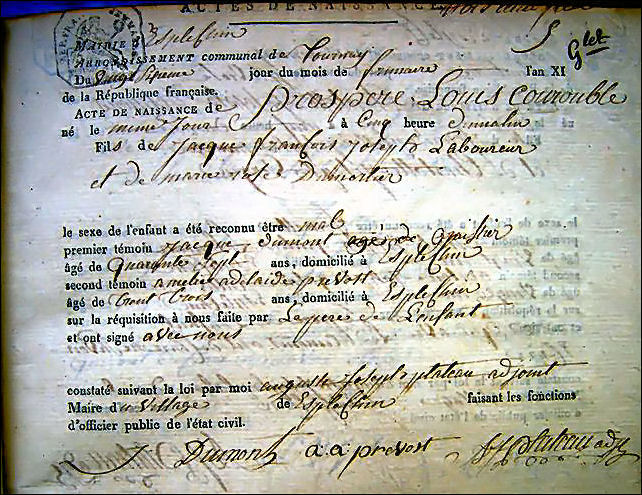 ACTES DE NAISSANCE
5
Glet
MAIRIE D'Esplechin
ARRONDISSEMENT communal de Tournay
Du jour du mois de frimaire l'an XI
de la République française.
ACTE DE NAISSANCE de Prospere Louis Courouble
né le meme jour à Cinq heure du matin
Fils de Jacque François Joseph Laboureur
et de marie rose Dumortier
le sexe de l'enfant a été reconnu être mal
premier témoin Jacque Dumont
âgé de Quarente Sept ans, domicilié à Esplechin
second témoin amelie adelaide prevost
âgé de trent trois ans, domicilié à Esplechin
sur la réquisition à nous faite par Le pere de L'enfant
et ont signé avec nous
constaté suivant la loi par moi auguste Joseph plateau adjoint
Maire du village de Esplechin faisant les fonctions
d'officier public de l'état civil.
J Dumont a. a prevost plateau adj